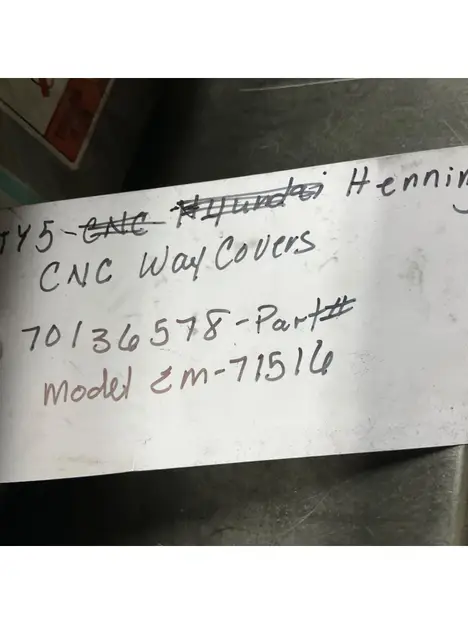 TY5 - CNC Hyundai Hennin
CNC Way Covers
70136578 - Part#
Model EM-71516